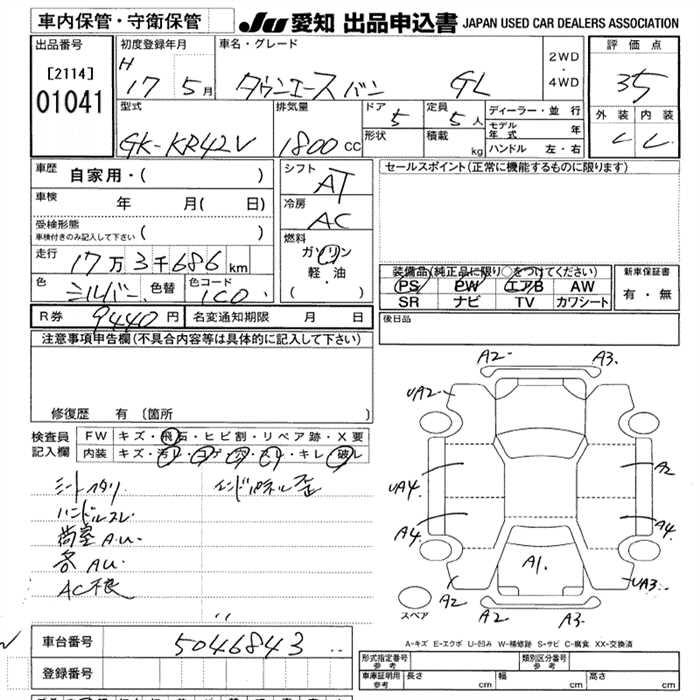 車内保管・守衛保管
JU 愛知 出品申込書 JAPAN USED CAR DEALERS ASSOCIATION
出品番号
[2114]
01041
初度登録年月
H 17 5月
車名・グレード
タウンエースバン GL
2WD
・
4WD
評価点
3.5
外装 内装
C C
型式
GK-KR42V
排気量
1800 CC
ドア 5
形状
定員 5人
積載 kg
ディーラー・並行
モデル年式 年
ハンドル 左・右
車歴
自家用・( )
車検
年 月( 日)
受検形態
車検付きのみ記入して下さい ( )
走行
17万3千686km
色 シルバー 色替 色コード 1C0
シフト
AT
冷房
AC
燃料
ガソリン
軽・油
( )
セールスポイント(正常に機能するものに限ります)
装備品(純正品に限り○をつけてください)
PS PW エアB AW
SR ナビ TV カワシート
新車保証書
有・無
R券 9440円 名変通知期限 月 日
後日品
注意事項申告欄(不具合内容等は具体的に記入して下さい)
修復歴 有(箇所 )
検査員
記入欄
FW キズ・飛石・ヒビ割・リペア跡・X要
内装 キズ・汚レ・コゲ・穴・スレ・キレ・破レ
シートヘタリ
インドパネル歪
ハンドルスレ
荷室A.U.
各AU.
AC不良
A2 A3.
UA2
UA4.
A2
A4
A4
A1.
A2
UA3.
A2 A3.
スペア
A-キズ E-エクボ U-凹み W-補修跡 S-サビ C-腐食 XX-交換済
車台番号
5046843
登録番号
形式指定番号
参考
類別区分番号
参考
車庫証明用
参考
長さ cm 幅 cm 高さ cm